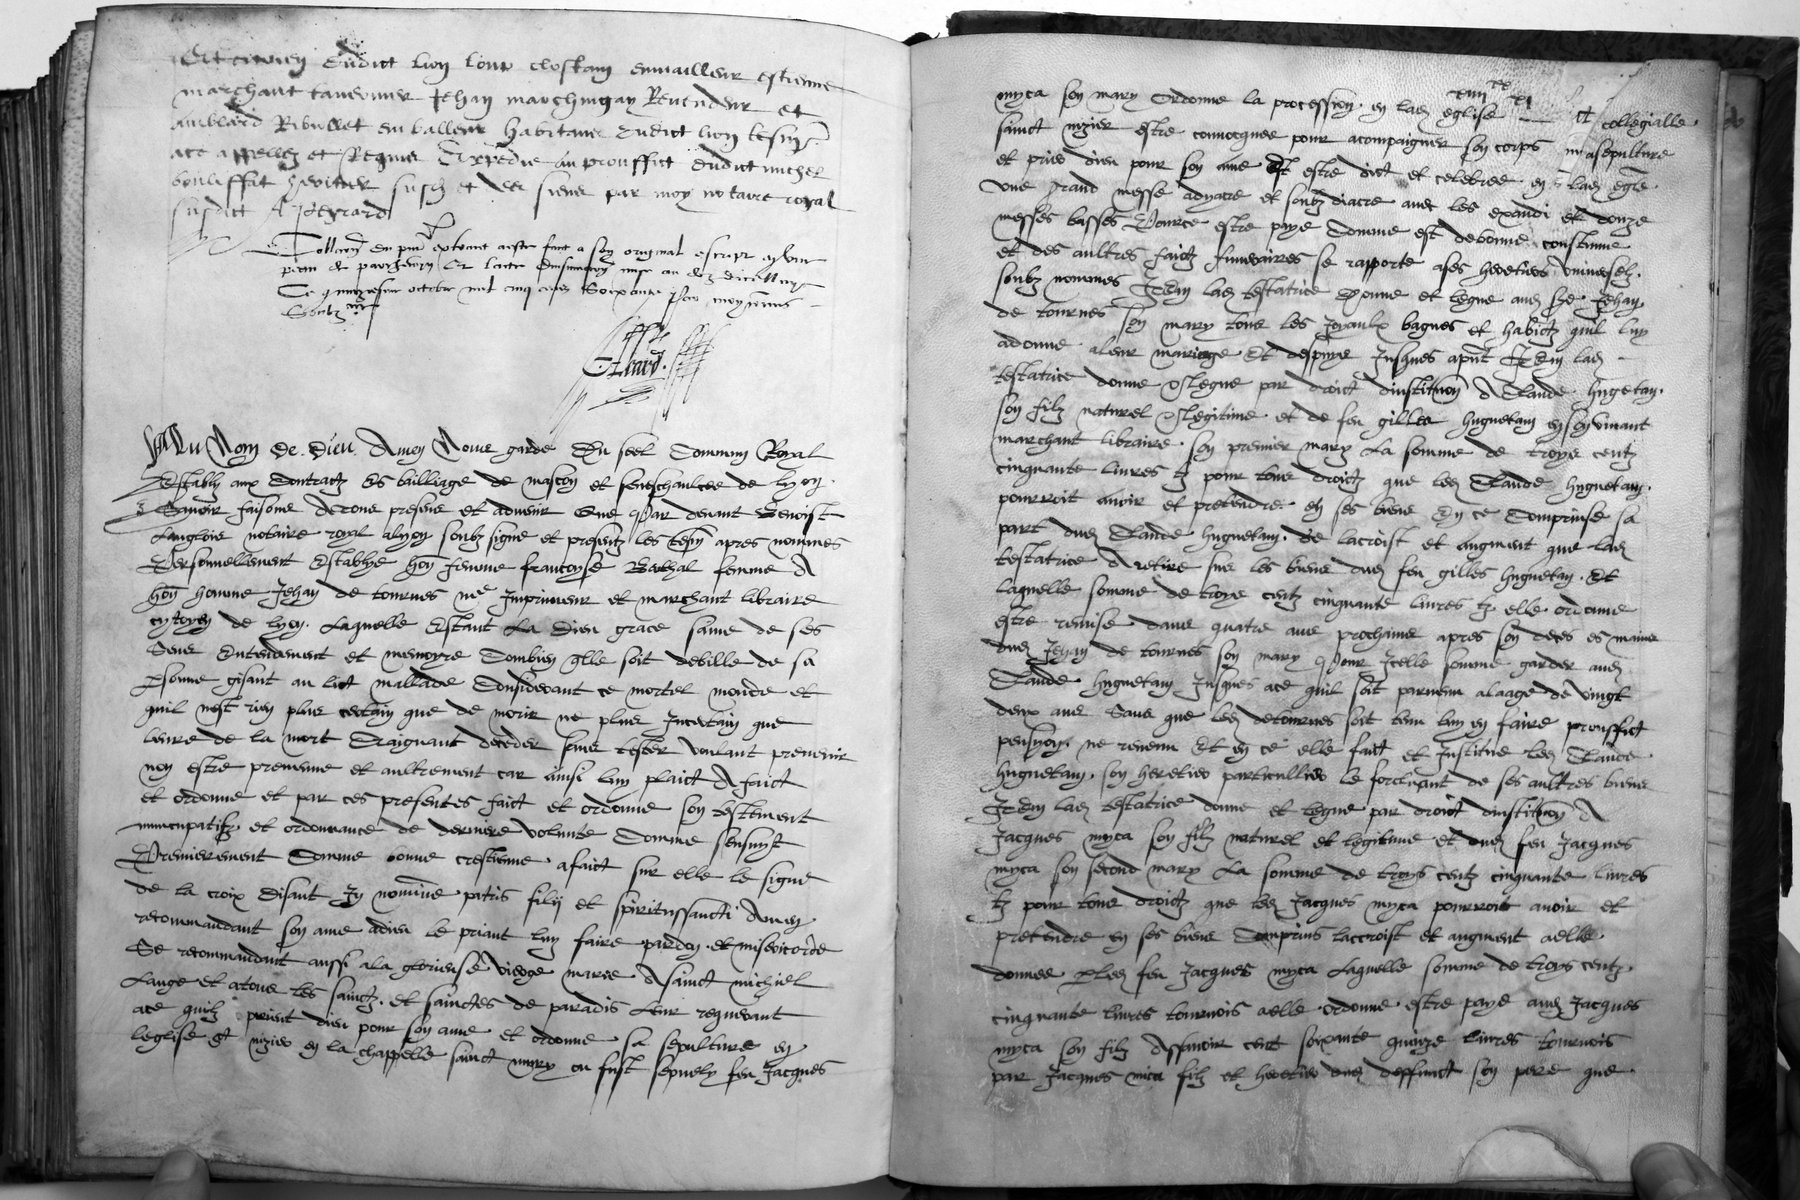 et citoien dudict lion Loys clostain esmailleur estienne
marchant tavernier Jehan marchingay Revendeur et
amblard Ribullet emballeur habitans dudict lion tesmoings
ace appellez et Requis Expedie au prouffict dudict michel
heritier susdit et des siens par moy notaire royal
susdict A Jo Evrard
Collacion du present extraict a este faict a son original escript en une
peau de parchemin Et laccte dinsinuacion mise au doz dicelluy
Ce octobre mil cinq cens soixante Par moy commis
soubzsigné
Au Nom De Dieu Amen Nous garde Du seel Commun Royal
Estably aux Contractz Es bailliage de mascon et seneschaulcee de Lyon
Scavoir faisons A tous presens et advenir Que Par devant Benoist
Langlois notaire royal alyon soubzsigné et presentz les tesmoings apres nommes
Personnellement Establye hon. femme francoyse Bathal femme A
hon. homme Jehan de tournes me Imprimeur et marchant libraire
cytoyen de Lyon. Laquelle Estant La Dieu grace saine de ses
Sens Entendement et memoyre Combien qlle soit debille de sa
psonne gisant au lict mallade Considerant ce mortel monde et
quil nest rien plus certain que de morir ne plus Incertain que
leure de la mort Craignant deceder sans tester voulant prevenir
non estre prevenue et aultrement car ainsi luy plaict A faict
et ordonne et par ces presentes faict et ordonne son testament
nuncupatif et ordonnance de derniere volunte Comme sensuyt
Premierement Comme bonne crestienne a faict sur elle le signe
de la croix disant In nomine patris filii et spiritussancti Amen
recommandant son ame adieu le priant luy faire pardon et misericorde
Se recommandant aussi ala glorieuse vierge marie A sainct michiel
Lange et atous les sainctz et sainctes de paradis Leur requerant
ace quilz prient dieu pour son ame et ordonne sa sepulture en
leglise st nizier en la chappelle sainct mury ou fust sepvely feu Jacques
myca son mary Ordonne la procession en lad eglise et collegialle
sainct nizier estre convocquee pour acompaigner son corps a sepulture
et prier dieu pour son ame Et estre dict et celebree en lad egle
une grand messe adyacre et soubzdiacre avec les exaudi et douze
messes basses Pource estre paye Comme est de bonne coustume
et des aultres faictz funeraires se rapporte ases heretiers universelz
soubz nommes Item lad testatrice Donne et legue aud sre Jehan
de tournes son mary tous les Joyaulx bagues et habictz quil luy
adonne aleur mariage Et despuys Jusques apnt Item lad
testatrice donne & legue par droict dinstitution A Claude huguetan
son filz naturel & legitime et de feu gilles huguetan en son vivant
marchant libraire son premier mary La somme de troys centz
cinquante livres tz pour tous droictz que led Claude huguetan
pourroit avoir et pretendre en ses biens En ce Comprinse sa
part dud Claude huguetan de lacroist et augment que lad
testatrice A retire sur les biens dud feu gilles huguetan. Et
laquelle somme de troys centz cinquante livres tz elle ordonne
estre remise dans quatre ans prochains apres son deces es mains
dud Jehan de tournes son mary Pour Icelle somme garder aud
Claude huguetan Jusques ace quil soit parvenu alaage de vingt
deux ans Sans que led detournes soit tenu luy en faire prouffict
pension. ne revenu Et en ce elle faict et Institue led Claude
huguetan son heretier particullier le forcluant de ses aultres biens
Item lad testatrice donne et legue par droict dinstitution A
Jacques myca son filz naturel et legitime et dud feu Jacques
myca son second mary La somme de troys centz cinquante livres
tz pour tous droictz que led Jacques myca pourroit avoir et
pretendre en ses biens Comprins laccroist et augment aelle
donnee p led feu Jacques myca Laquelle somme de troys centz
cinquante livres tournois aelle ordonne estre paye aud Jacques
myca son filz Assavoir cent soixante quinze livres tournois
par Jacques mica filz et heretier dud deffunct son pere que